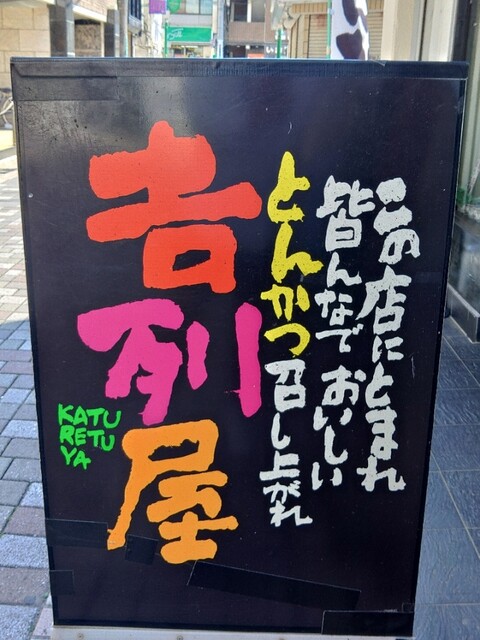 この店にとまれ
皆んなでおいしい
とんかつ召し上がれ
吉列屋
KATU
RETU
YA